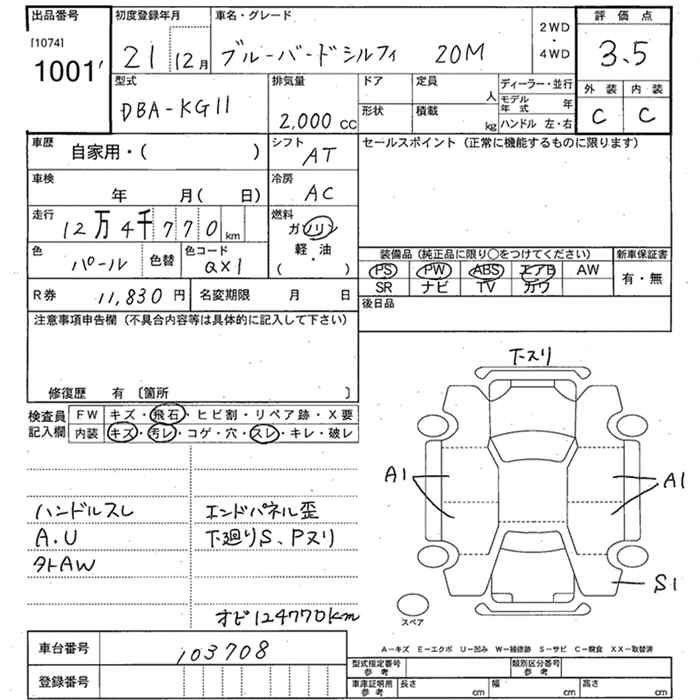 出品番号 初度登録年月 車名・グレード 2WD・4WD 評価点
[1074] 1001' 21 12月 ブルーバードシルフィ 20M 3.5
型式 排気量 ドア 定員 人 ディーラー・並行 外装 内装
DBA-KG11 2,000cc 形状 積載 kg モデル年式 年 C C
ハンドル 左・右
車歴 自家用・( ) シフト AT セールスポイント (正常に機能するものに限ります)
車検 年 月( 日) 冷房 AC
走行 12万4千770km 燃料 ガソリン
軽・油
( )
色 パール 色替 色コード QX1 装備品 (純正品に限り○をつけてください) 新車保証書
PS PW ABS エアB AW 有・無
SR ナビ TV カワ
R券 11,830円 名変期限 月 日 後日品
注意事項申告欄 (不具合内容等は具体的に記入して下さい)
修復歴 有 〔箇所 〕
検査員記入欄 FW キズ・飛石・ヒビ割・リペア跡・X要
内装 キズ・汚レ・コゲ・穴・スレ・キレ・破レ
下スリ
A1 A1
S1
スペア
ハンドルスレ エンドパネル歪
A.U 下廻りS、Pヌリ
外トAW
オビ124770km
A-キズ E-エクボ U-凹み W-補修跡 S-サビ C-腐食 XX-取替済
車台番号 103708 型式指定番号 参考 類別区分番号 参考
登録番号 車庫証明用 参考 長さ cm 幅 cm 高さ cm